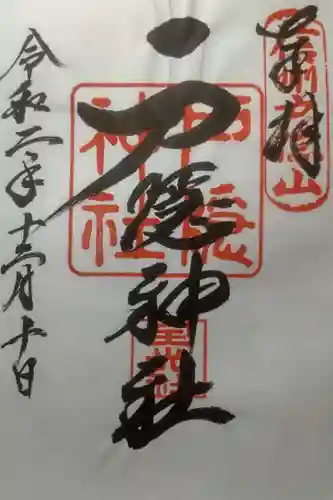 奉拝
信州戸隠山
戸隠神社
戸隠神社
令和二年十二月十日